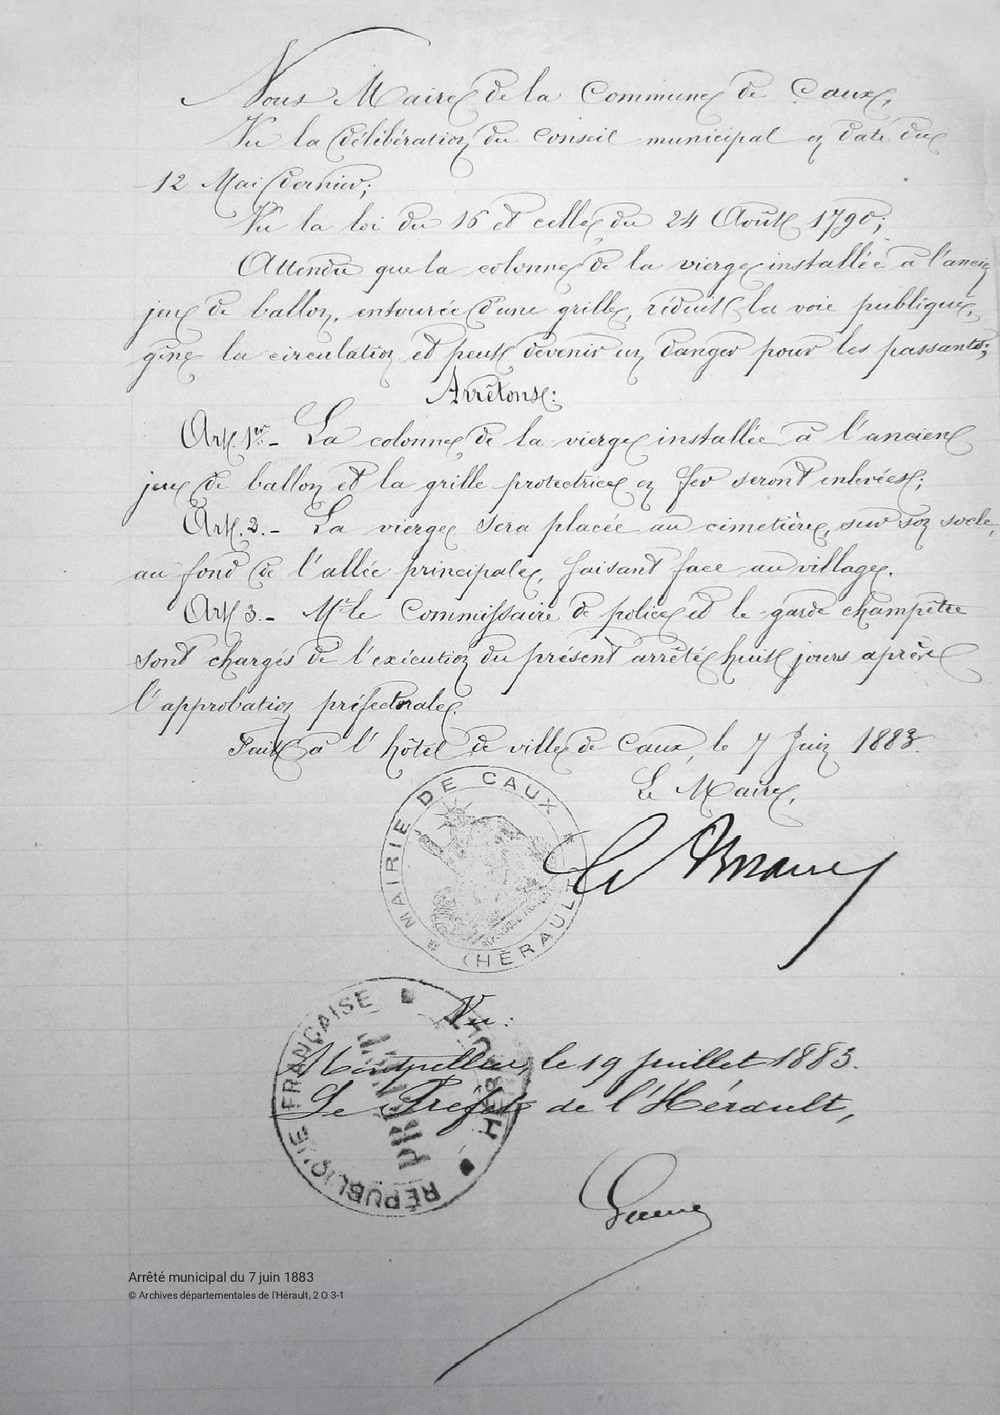 Nous Maire de la Commune de Caux,
Vu la délibération du Conseil municipal en date du
12 Mai dernier;
Vu la loi du 16 et celle du 24 Août 1790;
Attendu que la colonne de la vierge installée à l'ancien
jeu de ballon, entourée d'une grille, réduit la voie publique,
gêne la circulation et peut devenir un danger pour les passants;
Arrêtons:
Art. 1er.- La colonne de la vierge installée à l'ancien
jeu de ballon et la grille protectrice en fer seront enlevées;
Art. 2.- La vierge sera placée au cimetière, sur son socle,
au fond de l'allée principale, faisant face au village.
Art 3.- Mr le Commissaire de police et le garde champêtre
sont chargés de l'exécution du présent arrêté huit jours après
l'approbation préfectorale.
Fait à l'hôtel de ville de Caux, le 7 Juin 1883.
Le Maire,
MAIRIE DE CAUX
(HÉRAULT)
RÉPUBLIQUE FRANÇAISE
Vu:
Montpellier, le 19 Juillet 1883.
Le Préfet de l'Hérault,
RÉPUBLIQUE FRANÇAISE
HÉRAULT
Arrêté municipal du 7 juin 1883
© Archives départementales de l'Hérault, 2 O 3-1